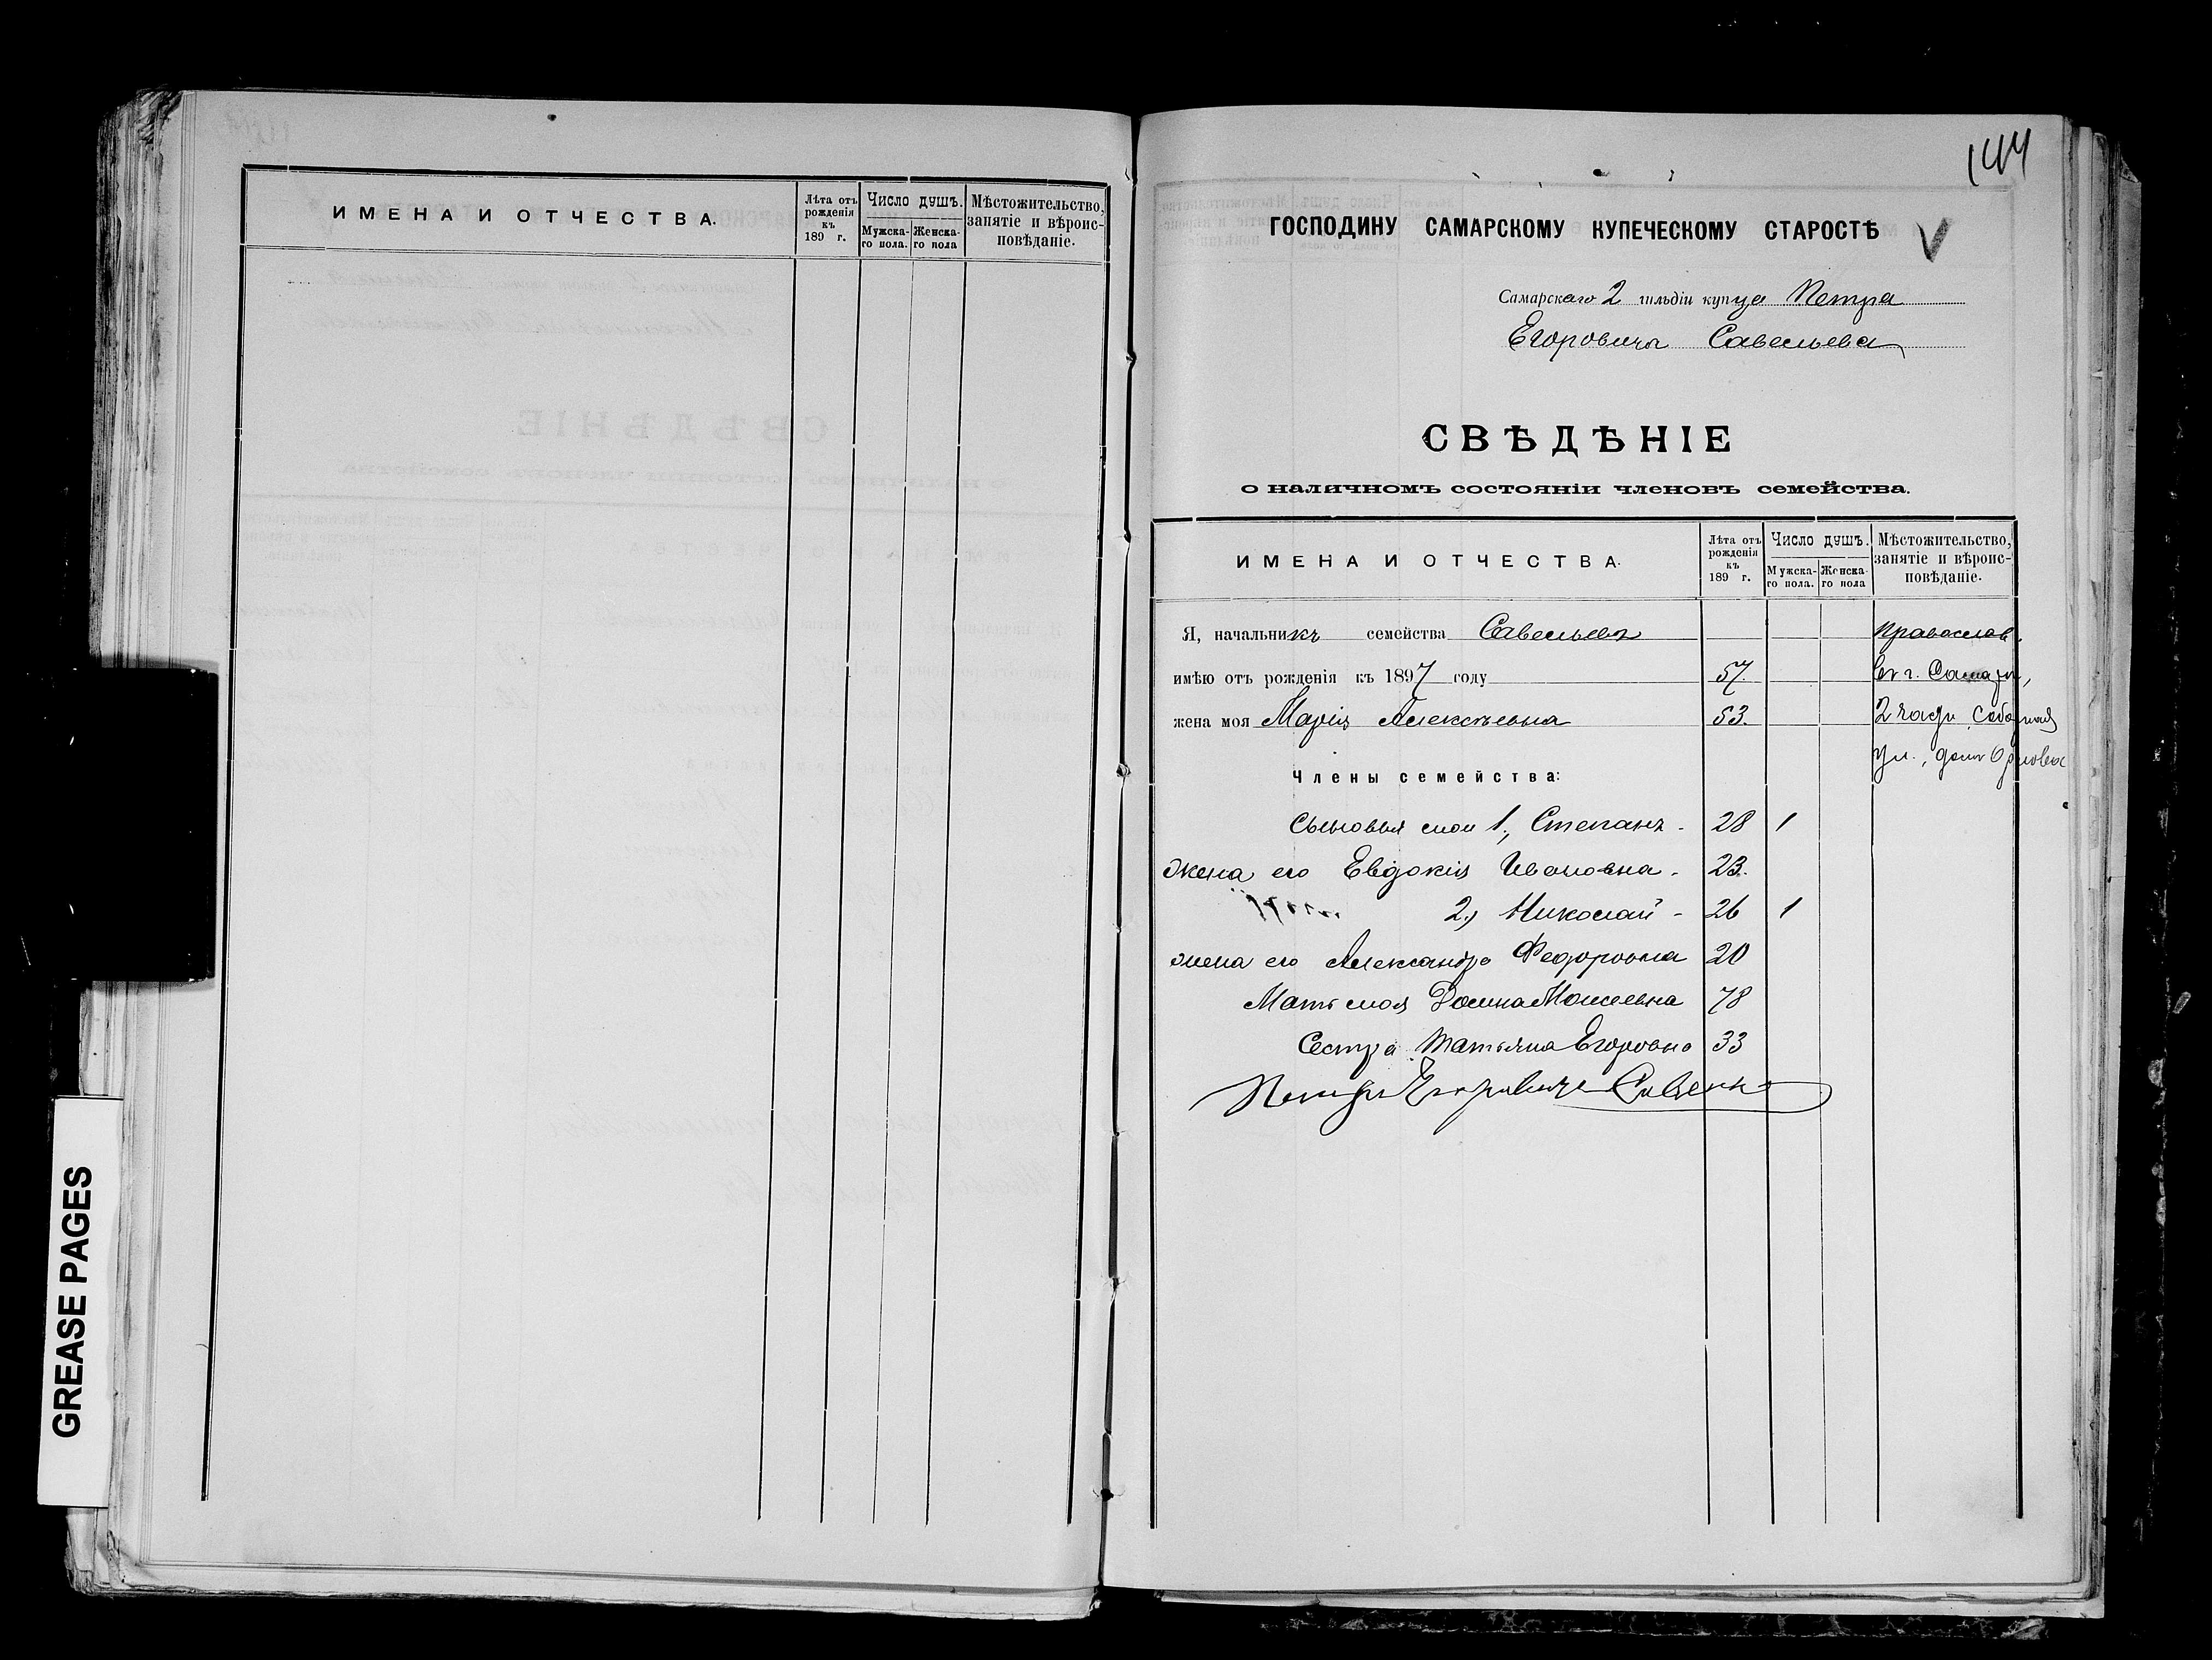 ИМЕНА И ОТЧЕСТВА.
Лѣта отъ рожденія къ 189 г.
Число душъ.
Мужска-го пола.
Женска-го пола
Мѣстожительство, занятіе и вѣроис-повѣданіе.
GREASE PAGES
144
ГОСПОДИНУ САМАРСКОМУ КУПЕЧЕСКОМУ СТАРОСТѢ
Самарскаго 2 гильдіи купца Петра
Егоровича Савельева
СВѢДѢНІЕ
о наличномъ состояніи членовъ семейства.
ИМЕНА И ОТЧЕСТВА.
Лѣта отъ рожденія къ 189 г.
Число душъ.
Мужска-го пола.
Женска-го пола
Мѣстожительство, занятіе и вѣроис-повѣданіе.
Я, начальникъ семейства Савельевъ православ.
имѣю отъ рожденія къ 1897 году 57. Въ г. Самарѣ,
жена моя Марія Алексѣевна 53. 2 части Соборная
ул., домъ Орлова
Члены семейства:
Сыновья мои 1, Степанъ - 28 1
Жена его Евдокія Ивановна - 23.
2, Николай - 26 1
жена его Александра Федоровна 20
Мать моя Домна Моисеевна 78
Сестра Татьяна Егоровна 33
Петръ Егоровичъ Савельевъ